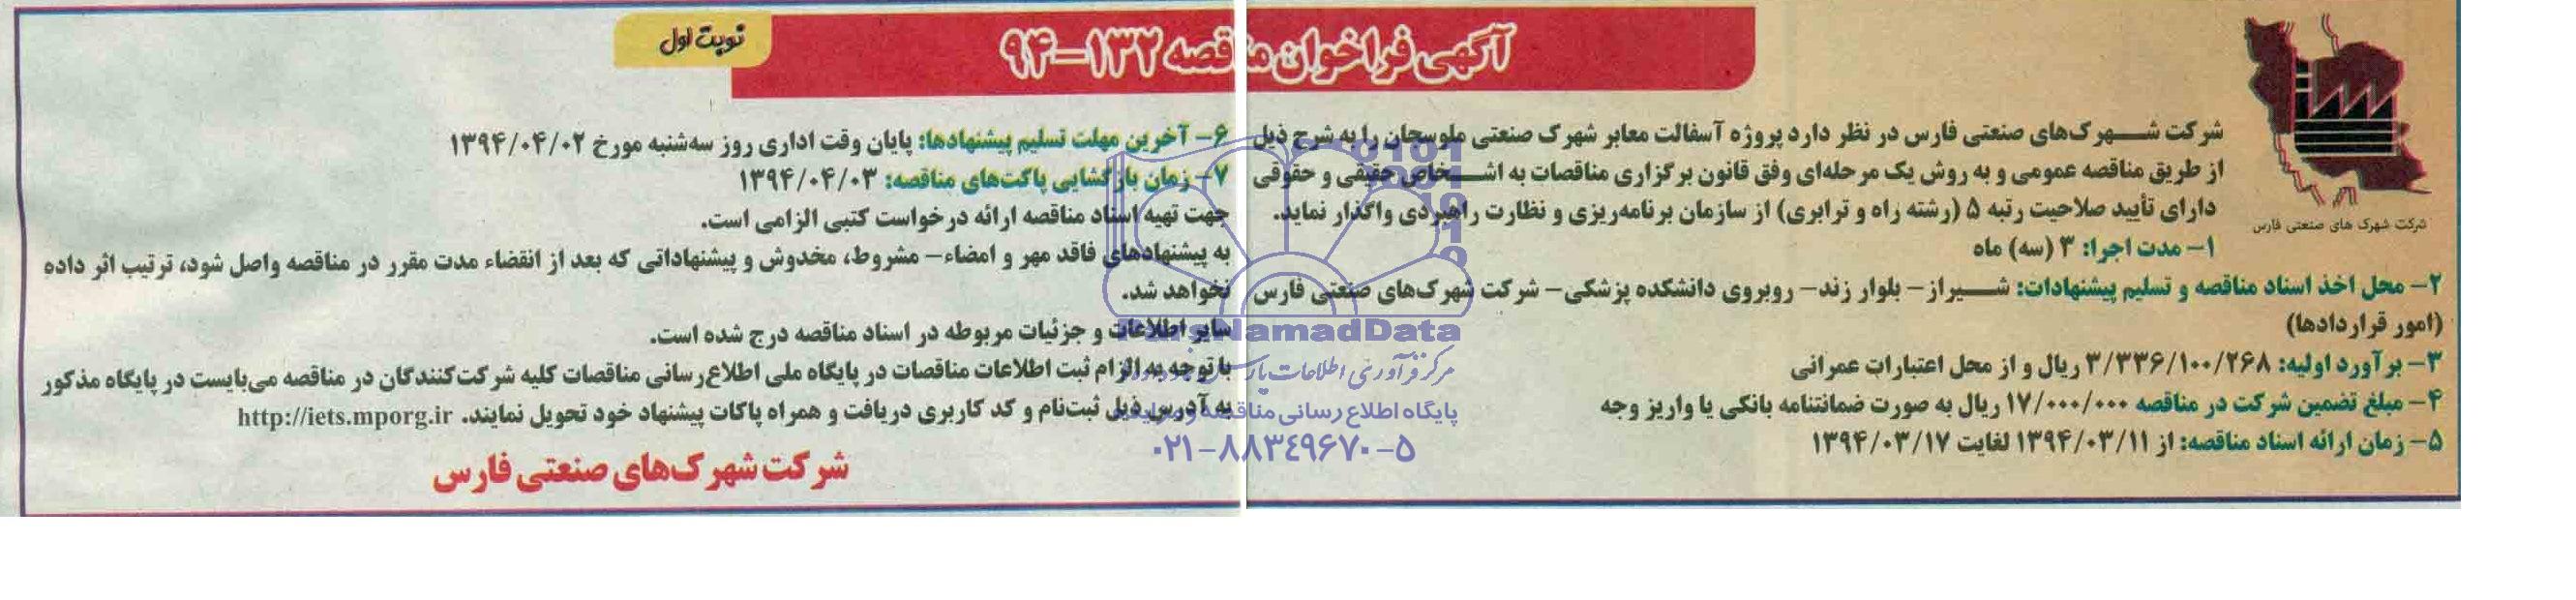 آگهی فراخوان مناقصه ۱۳۲-۹۴
نوبت اول
شرکت شهرک های صنعتی فارس
شرکت شهرک‌های صنعتی فارس در نظر دارد پروژه آسفالت معابر شهرک صنعتی ملوسجان را به شرح ذیل
از طریق مناقصه عمومی و به روش یک مرحله‌ای وفق قانون برگزاری مناقصات به اشخاص حقیقی و حقوقی
دارای تأیید صلاحیت رتبه ۵ (رشته راه و ترابری) از سازمان برنامه‌ریزی و نظارت راهبردی واگذار نماید.
۱- مدت اجرا: ۳ (سه) ماه
۲- محل اخذ اسناد مناقصه و تسلیم پیشنهادات: شیراز- بلوار زند- روبروی دانشکده پزشکی- شرکت شهرک‌های صنعتی فارس
(امور قراردادها)
۳- برآورد اولیه: ۳/۳۳۶/۱۰۰/۲۶۸ ریال و از محل اعتبارات عمرانی
۴- مبلغ تضمین شرکت در مناقصه ۱۷/۰۰۰/۰۰۰ ریال به صورت ضمانتنامه بانکی یا واریز وجه
۵- زمان ارائه اسناد مناقصه: از ۱۳۹۴/۰۳/۱۱ لغایت ۱۳۹۴/۰۳/۱۷
۶- آخرین مهلت تسلیم پیشنهادها: پایان وقت اداری روز سه‌شنبه مورخ ۱۳۹۴/۰۴/۰۲
۷- زمان بازگشایی پاکت‌های مناقصه: ۱۳۹۴/۰۴/۰۳
جهت تهیه اسناد مناقصه ارائه درخواست کتبی الزامی است.
به پیشنهادهای فاقد مهر و امضاء- مشروط، مخدوش و پیشنهاداتی که بعد از انقضاء مدت مقرر در مناقصه واصل شود، ترتیب اثر داده
نخواهد شد.
سایر اطلاعات و جزئیات مربوطه در اسناد مناقصه درج شده است.
با توجه به الزام ثبت اطلاعات مناقصات در پایگاه ملی اطلاع‌رسانی مناقصات کلیه شرکت‌کنندگان در مناقصه می‌بایست در پایگاه مذکور
به آدرس ذیل ثبت‌نام و کد کاربری دریافت و همراه پاکات پیشنهاد خود تحویل نمایند. http://iets.mporg.ir
شرکت شهرک‌های صنعتی فارس
NamadData
مرکز فرآوری اطلاعات پارس
پایگاه اطلاع رسانی مناقصه
۰۲۱-۸۸۳۴۹۶۷۰-۵